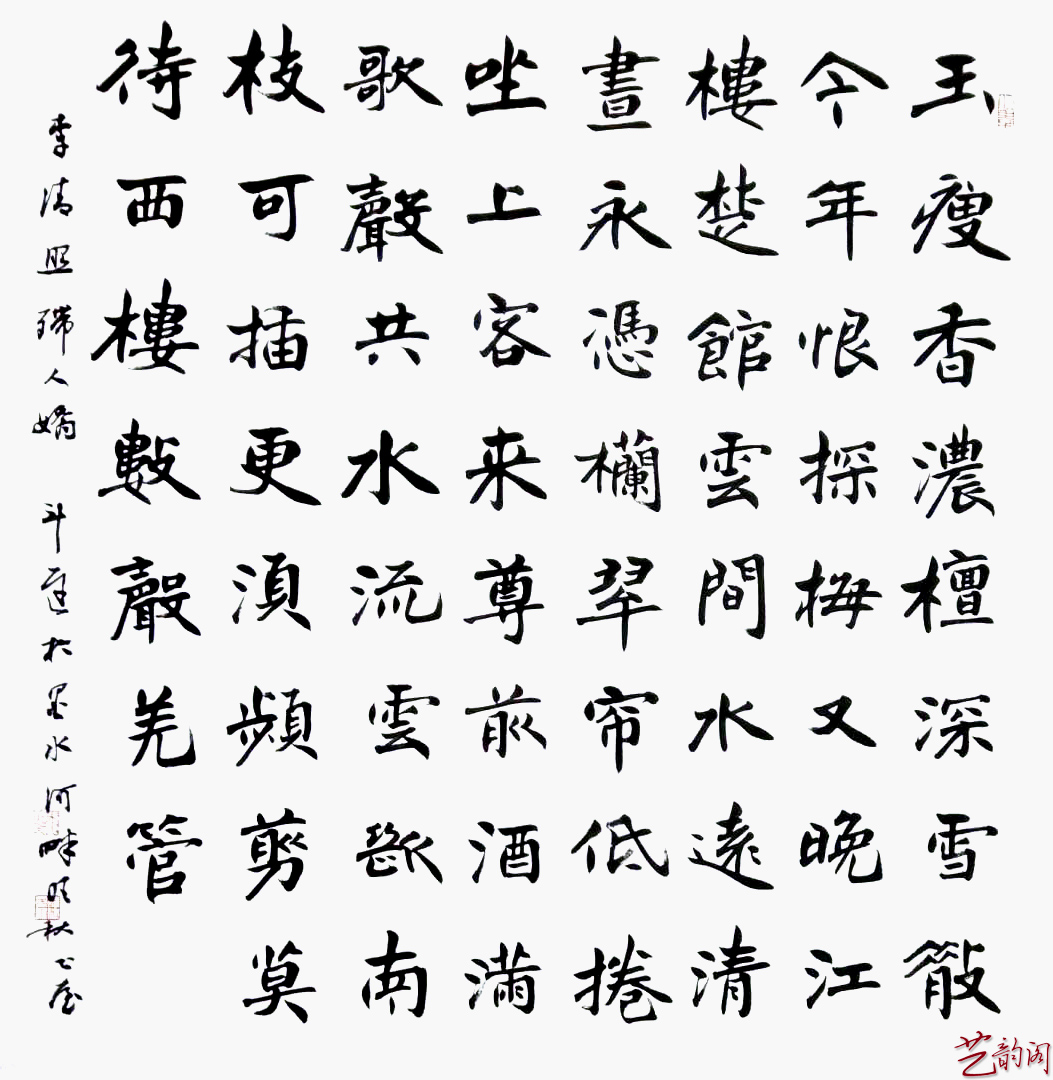 玉瘦香濃檀深雪散
今年恨探梅又晚江
樓楚館雲間水遠清
晝永憑欄翠帘低捲
坐上客来尊前酒滿
歌聲共水流雲斷南
枝可插更須頻剪莫
待西樓數聲羌管
李清照殢人嬌 於墨水河畔
艺韵阁